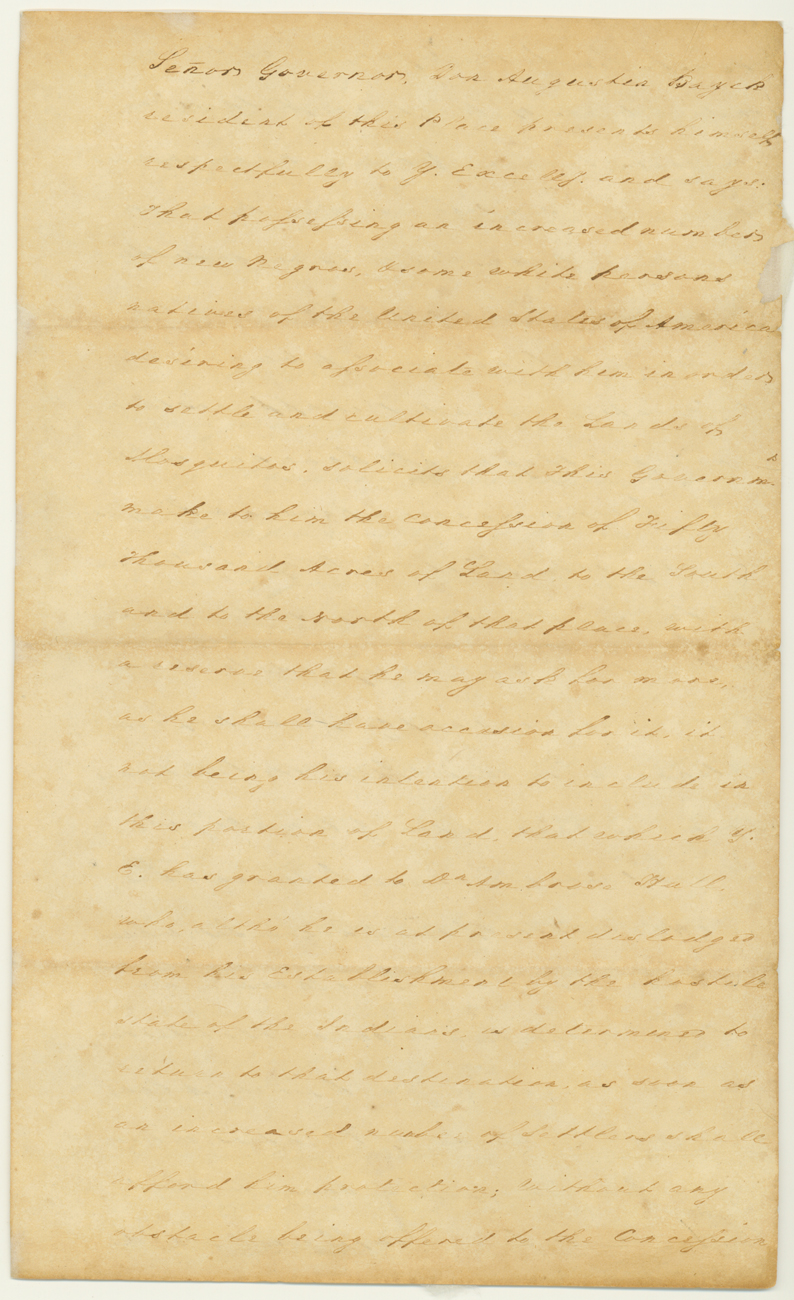 Señor Governor, Don Augustin Bayer
resident of this Place presents himself
respectfully to Y. Excelly. and says:
That possessing an increased number
of new Negros, & some white persons
natives of the United States of America
desiring to associate with him in order
to settle and cultivate the Lands of
Mosquitos, solicits that This Governmt.
make to him the Concession of Fifty
thousand Acres of Land to the South
and to the North of that place, with
a reserve that he may ask for more,
as he shall have occasion for it, it
not being his intention to include in
this portion of Land, that which Y.
E. has granted to Dn Ambrose Hull
who, altho he is at present dislodged
from his Establishment by the hostile
state of the Indians, is determined to
return to that destination, as soon as
an increased number of Settlers shall
afford him protection; without any
obstacle being offered to the Concession